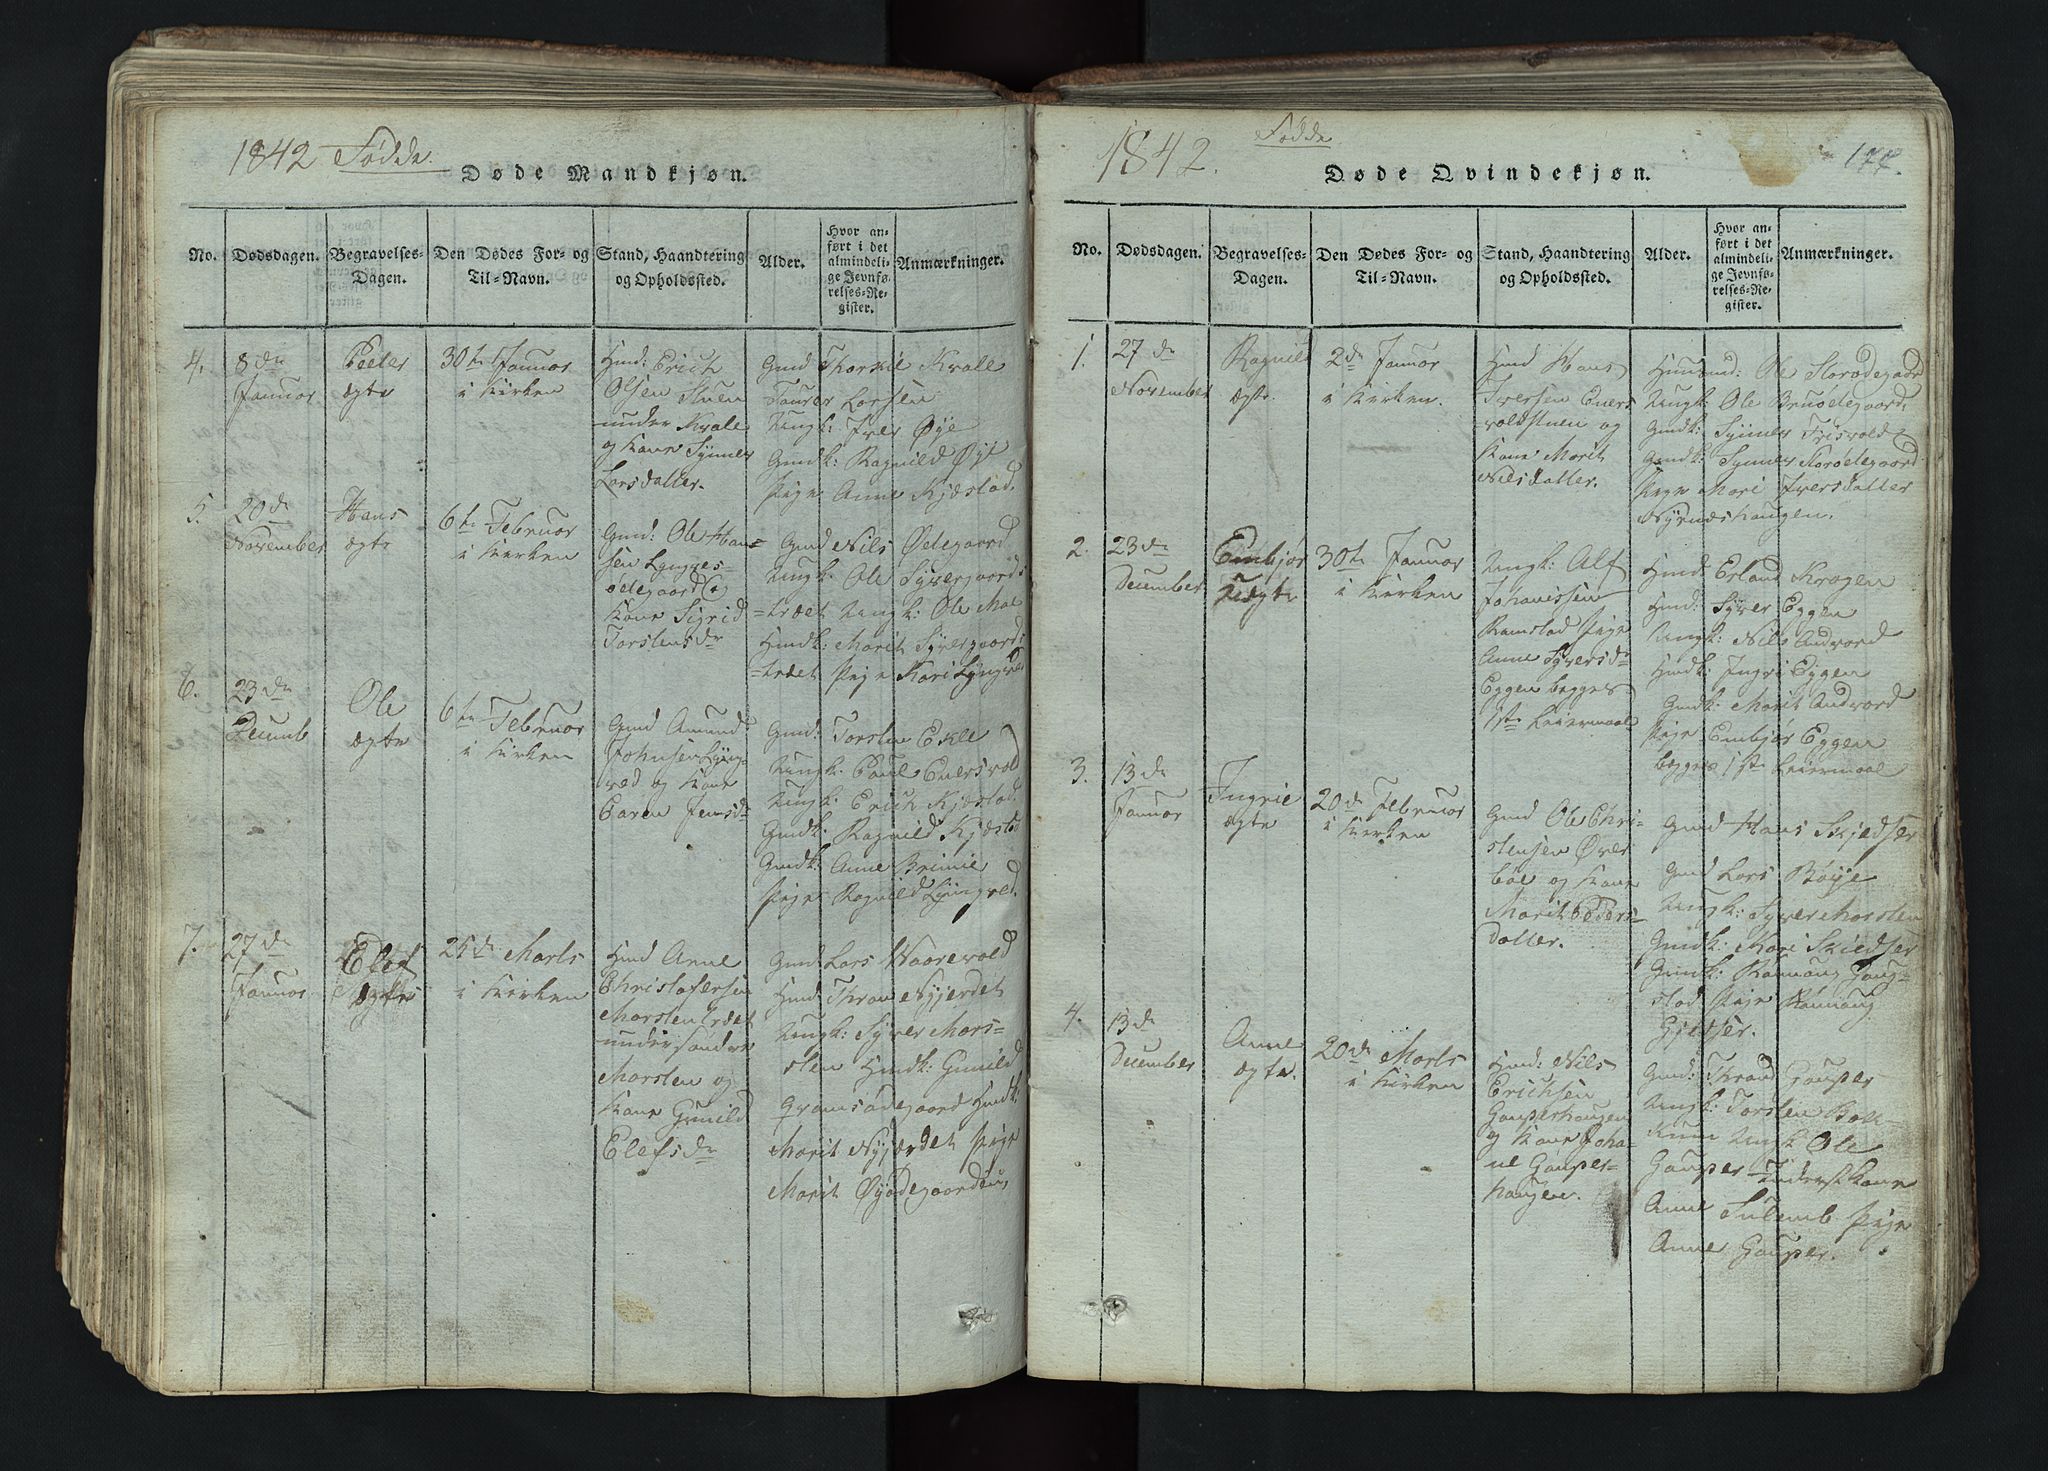 1842 Fødde.
Døde Mandkjøn.
No.
Dødsdagen.
Begravelses-
Dagen.
Den Dødes For- og
Til-Navn.
Stand, Haandtering
og Opholdssted.
Alder.
Hvor an-
ført i det
almindeli-
ge Jevnfø-
relses-Re-
gister.
Anmærkninger.
4.
8de
Januar
Peeter
ægte
30te Januar
i Kirken
Hmd: Erich
Olsen Stuen
under Kvale
og Kone Synnev
Larsdatter.
Gmd Torkil Kvale
Taurer Larsen
Ungk: Iver Øye
Gmdk: Ragnild Øye
Pige Anne Kjæstad.
5.
20de
November
Hans
ægte
6te Februar
i Kirken
Gmd: Ole Han-
sen Lyngves-
ødegaard
Kone Sigrid
Torstensdr
Gmd Nils Ødegaard
Ungk. Ole Syvergaards-
-træet Ungk: Ole Moe
Hmdk: Marit Syvergaards
-træet Pige Kari Lyngved
6.
23de
Decemb
Ole
ægte
6te Februar
i Kirken
Gmd Amund
Johnsen Lyng-
ved og Kone
Caren Jensdr
Gmd: Torsten Ekle
Ungk: Paul Enersvold
Ungk: Erich Kjæstad.
Gmdk: Ragnild Kjæstad
Gmdk: Anne Brimie
Pige Ragnild Lyngved.
7.
27de
Januar
Elef
ægte
25de Marts
i Kirken
Hmd Arne
Christofersen
Marstentræet
under søndre
Marsten og
Kone Gunild
Elefsdr
Gmd: Lars Waarevold
Hmd Thron Nyjerdet
Ungk: Syver Mars-
sten Hmdk: Gunild
Gramsødegaard Hmdk:
Marit Nyjærdet Pige
Marit Øyødegaarden
1842.
Fødde
177.
Døde Qvindekjøn.
No.
Dødsdagen.
Begravelses-
Dagen.
Den Dødes For- og
Til-Navn.
Stand, Haandtering
og Opholdssted.
Alder.
Hvor an-
ført i det
almindeli-
ge Jevnfø-
relses-Re-
gister.
Anmærkninger.
1.
27de
November
Ragnild
ægte.
2de Januar
i Kirken.
Hmd Hans
Iversen Eners
voldstuen og
Kone Marit
Nilsdatter.
Huusmd: Ole Storødegaard
Ungk Ole Bruødegaard,
Gmdk: Synnev Frisvold
Gmdk: Synnev Storødegaard
Pige Mari Iversdatter
Nyendshaugen.
2.
23de
December
Embjør
Uægte
30te Januar
i Kirken
Ungk: Alf
Johanissen
Ramstad Pige
Anne Syversdr
Eggen begges
1ste Leiermaal
Hmd Erland Krogen
Hmd: Syver Eggen
Ungk: Nils Andvord
Hmdk: Ingri Eggen
Gmdk: Marit Andvord
Pige Embjør Eggen
begges 1ste Leiermaal
3.
13de
Januar
Ingrie
ægte
20de Februar
i Kirken
Gmd Ole Chri-
stensen Øver
bøe og Kone
Marit Peders-
datter.
Gmd Hans Skjedser
Gmd Lars Bøye
Ungk: Syver Marsten
Gmdk: Mari Skiedser
Gmdk: Rannang Gaug-
stad Pige Rannang
Gjetser.
4.
13de
December
Anne
ægte.
20de Marts
i Kirken
Hmd: Nils
Erichsen
Gauperhaugen
og Kone Joha-
ne Gauper-
haugen.
Gmd: Thrond Gauper
Ungk: Torsten Bak-
kum Ungk Ole
Gauper
Anne Sulemb Pige
Anne Gauper.